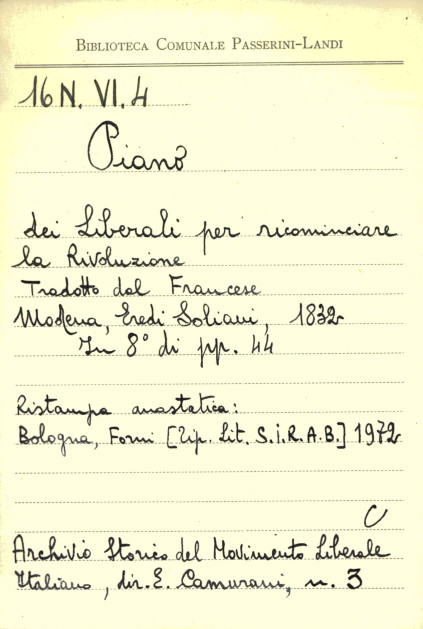 BIBLIOTECA COMUNALE PASSERINI-LANDI
16 N. VI. 4
Piano
dei Liberali per ricominciare
la Rivoluzione
Tradotto dal Francese
Modena, Eredi Soliani, 1832
In 8° di pp. 44
Ristampa anastatica:
Bologna, Forni [Tip. Lit. S.I.R.A.B.] 1972
C
Archivio Storico del Movimento Liberale
Italiano, dir. E. Camurani, n. 3